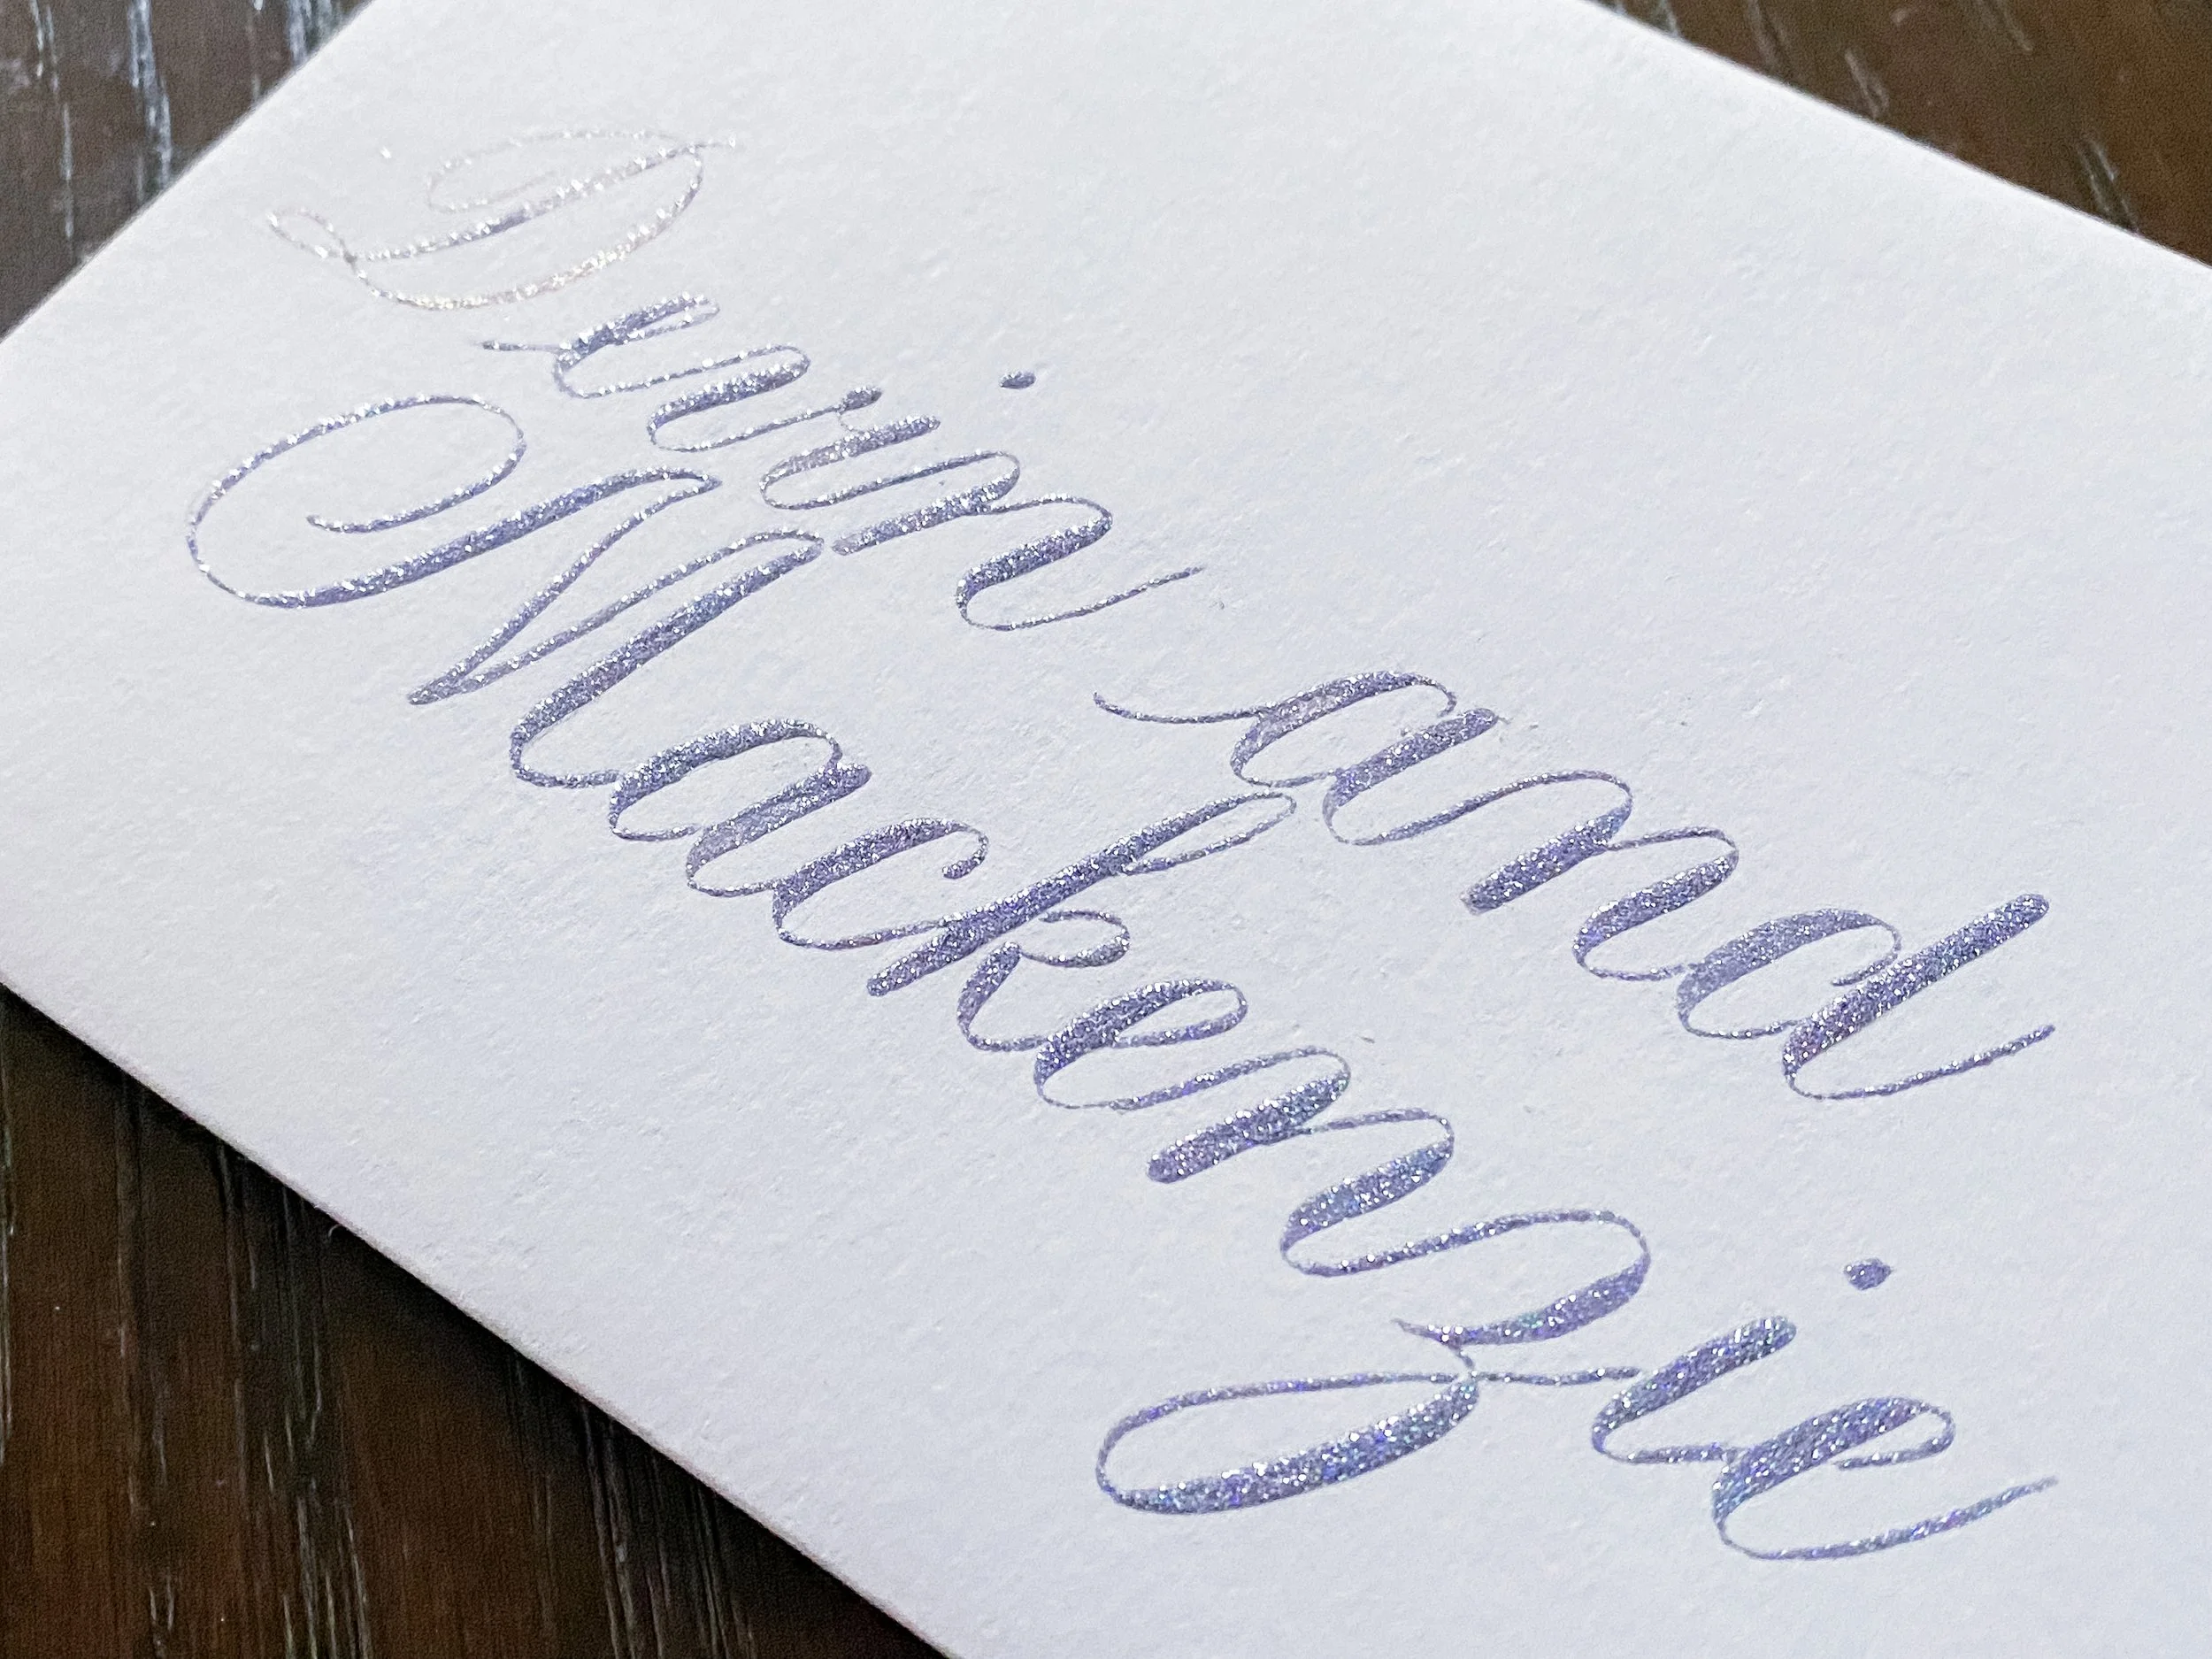 Devin and
Mackenzie